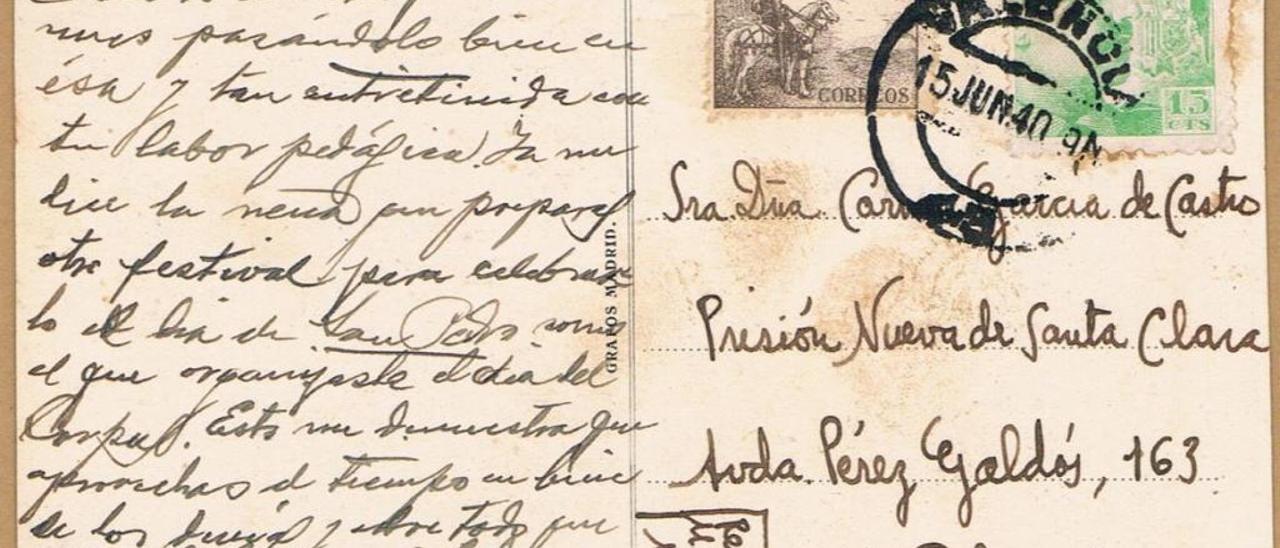 pasándolo bien en
ésa y tan entretenida con
tu labor pedágica. Ya me
dice la nena que preparas
otro festival para celebrar
lo el día de San Pedro como
el que organizaste el día del
Corpus. Esto me demuestra que
aprovechas el tiempo en bien
de los demás y sobre todo que
GRAFOS MADRID.
CORREOS
15 JUN 40
15
CTS
Sra Dña. García de Castro
Prisión Nueva de Santa Clara
Avda. Pérez Galdós, 163